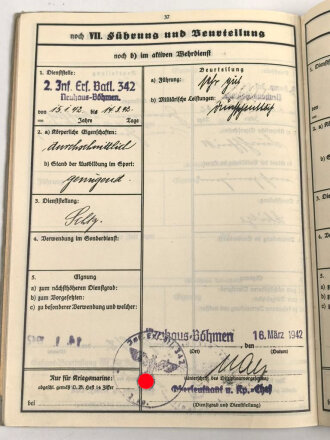 37
noch VII. Führung und Beurteilung
noch b) im aktiven Wehrdienst
1. Dienststelle:
2. Inf. Ers. Batl. 342
Neuhaus-Böhmen.
von 15.1.42 bis 14.3.42
Jahre Tage
2. a) Körperliche Eigenschaften:
durchschnittlich
b) Stand der Ausbildung im Sport:
genügend
3. Dienststellung:
Schtz.
4. Verwendung im Sonderdienst:
5. Eignung
a) zum nächsthöheren Dienstgrad:
b) zum Vorgesetzten:
c) zu besonderer Verwendung und welcher:
Nur für Kriegsmarine:
bei
Beurteilung
a) Führung: sehr gut
b) Militärische Leistungen:
durchschnittlich
Neuhaus-Böhmen 16. März 1942
(Ort) (Datum)
(Unterschrift des Disziplinarvorgesetzten)
Oberleutnant u. Kp.-Chef
(Dienstgrad und Dienststellung)